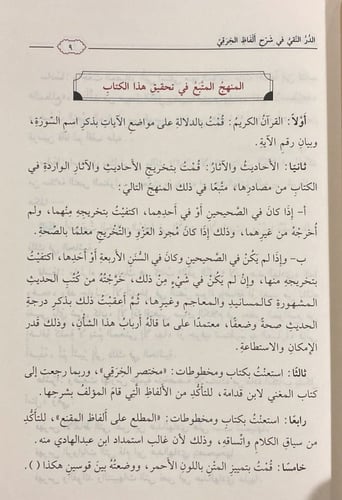 الدُّرُّ النَّقِيُّ فِي شَرْحِ أَلْفَاظِ الخِرَقِيِّ
٩
المنهجُ المتَّبَعُ في تحقيقِ هذا الكتابِ
أوَّلاً: القرآنُ الكريمُ: قُمْتُ بالدلالةِ على مواضعِ الآياتِ بذكرِ اسمِ السُّورَةِ،
وبيانِ رقمِ الآيةِ.
ثانيًا: الأحاديثُ والآثارُ: قُمْتُ بتخريجِ الأحاديثِ والآثارِ الواردةِ في
الكتابِ من مصادرِها، متَّبعًا في ذلك المنهجَ التاليَ:
أ– إذَا كانَ في الصَّحيحينِ أوْ في أحدِهِما، اكتفيْتُ بتخريجِهِ مِنْهما، ولم
أُخرِجْهُ من غيرِهما، وذلكَ إذَا كانَ مُجردَ العَزْوِ والتَّخْريجِ مَعلمًا بالصِّحةِ.
ب– وإذَا لم يكُنْ في الصَّحيحينِ وكانَ في السُّننِ الأربعةِ أوْ أحَدِها، اكتفيْتُ
بتخريجِهِ منها، وإنْ لم يكُنْ في شَيْءٍ مِنْ ذلك، خَرَّجْتُهُ من كُتُبِ الحديثِ
المشهورَةِ كالمسانيدِ والمعاجمِ وغيرِها، ثُمَّ أعقبْتُ ذلك بذكرِ درجةِ
الحديثِ صحةً وضعفًا، معتمدًا على ما قالَهُ أربابُ هذا الشأنِ، وذلك قدر
الإمكانِ والاستطاعةِ.
ثالثًا: استعنْتُ بكتابِ ومخطوطاتِ: «مختصرِ الخِرَقِي»، وربما رجعت إلى
كتابِ المغني لابنِ قدامة، للتأكُّدِ من الألفاظِ الَّتي قامَ المؤلفُ بشرحِها.
رابعًا: استعنْتُ بكتابِ ومخطوطاتِ: «المطلع على ألفاظِ المقنِع»، للتأكُّدِ
من سياقِ الكلامِ واتِّساقِه، وذلك لأن غالب استمداد ابن عبدالهادي منه.
خامسًا: قُمْتُ بتمييزِ المتْنِ باللونِ الأحمرِ، ووضعتُهُ بينَ قوسينِ هكذا ( ).